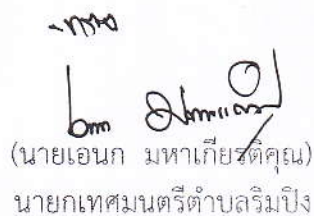 - ทราบ
(นายเอนก มหาเกียรติคุณ)
นายกเทศมนตรีตำบลริมปิง